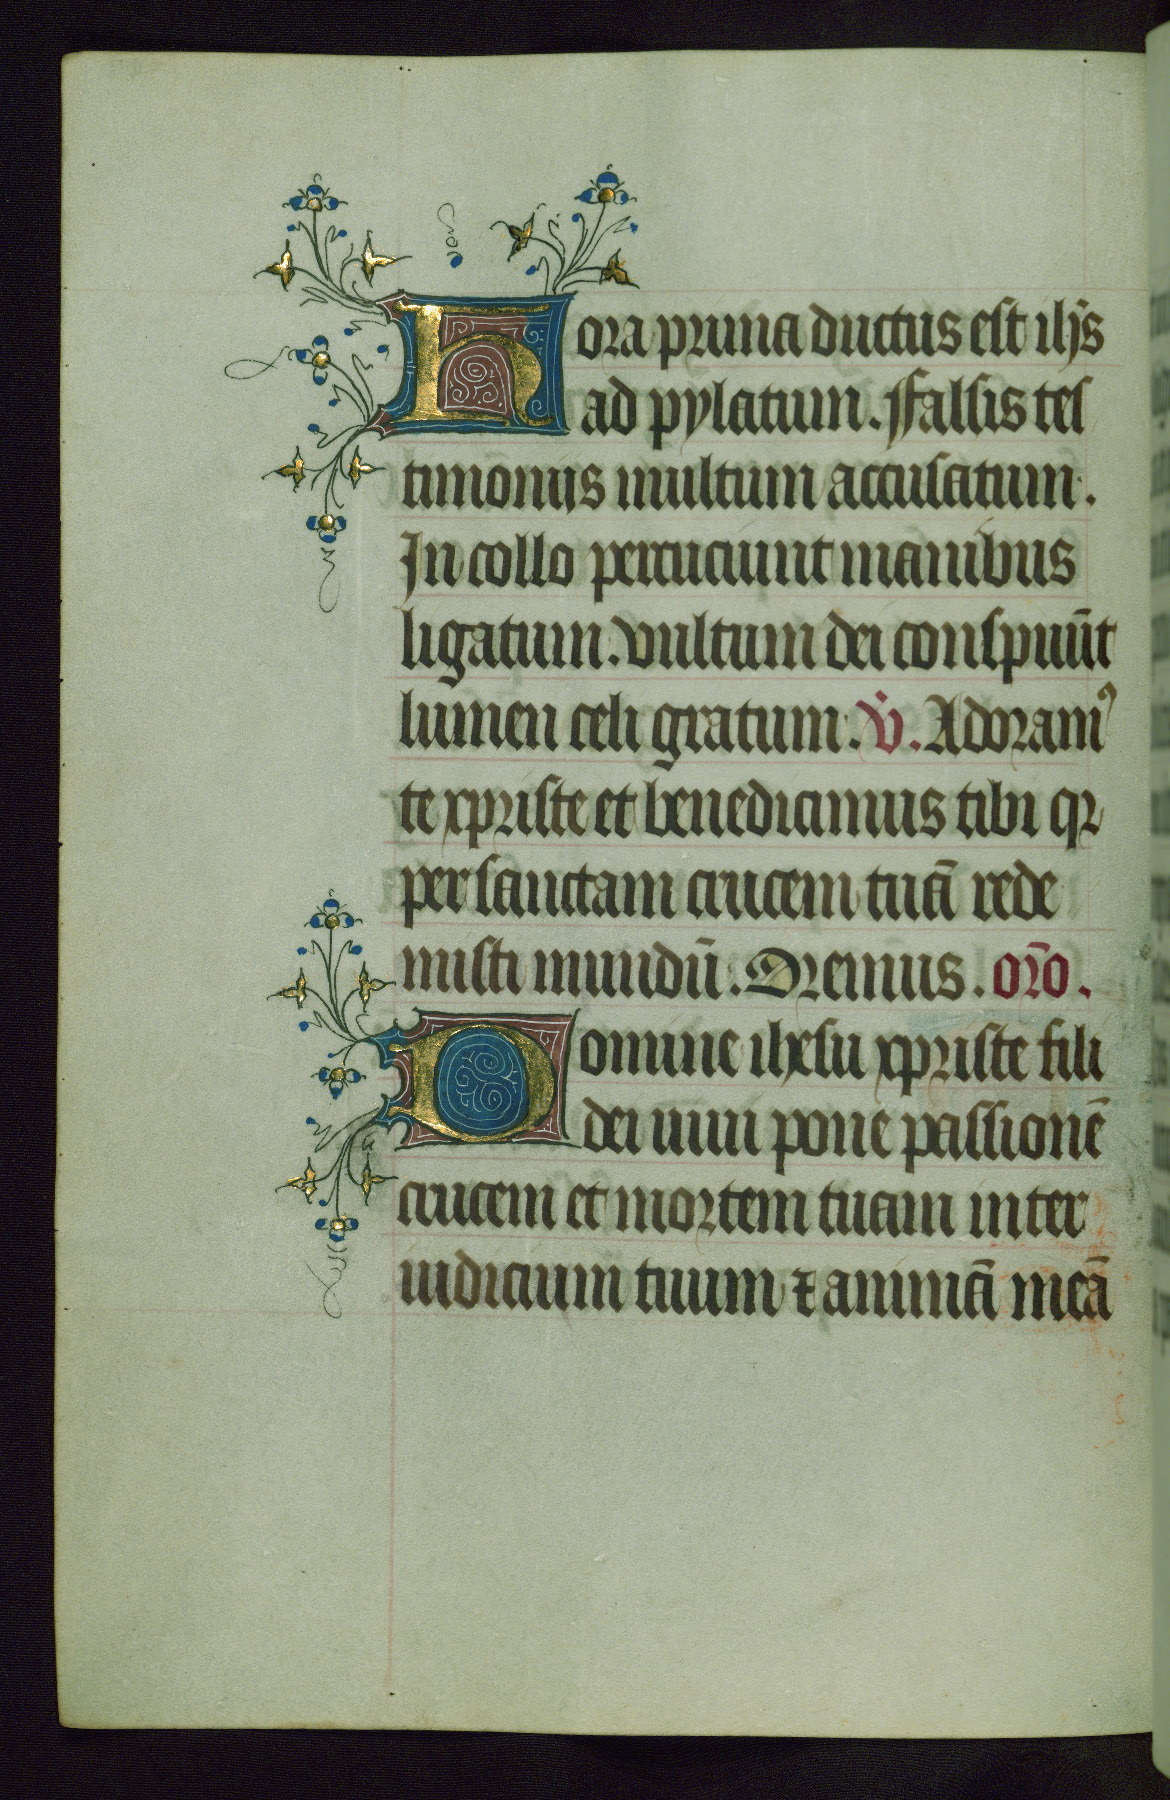 Hora prima ductus est ih̄s
ad pylatum. ffalsis tes
timonijs multum accusatum.
In collo percuciunt manibus
ligatum. vultum dei conspuūt
lumen celi gratum. v̇. Adoramꝰ
te xpriste et benedicimus tibi qr
per sanctam crucem tuā rede
misti mundū. Oremus. or̄o.
Domine ihesu xpriste fili
dei uiui pone passionē
crucem et mortem tuam inter
iudicium tuum ⁊ animā meā